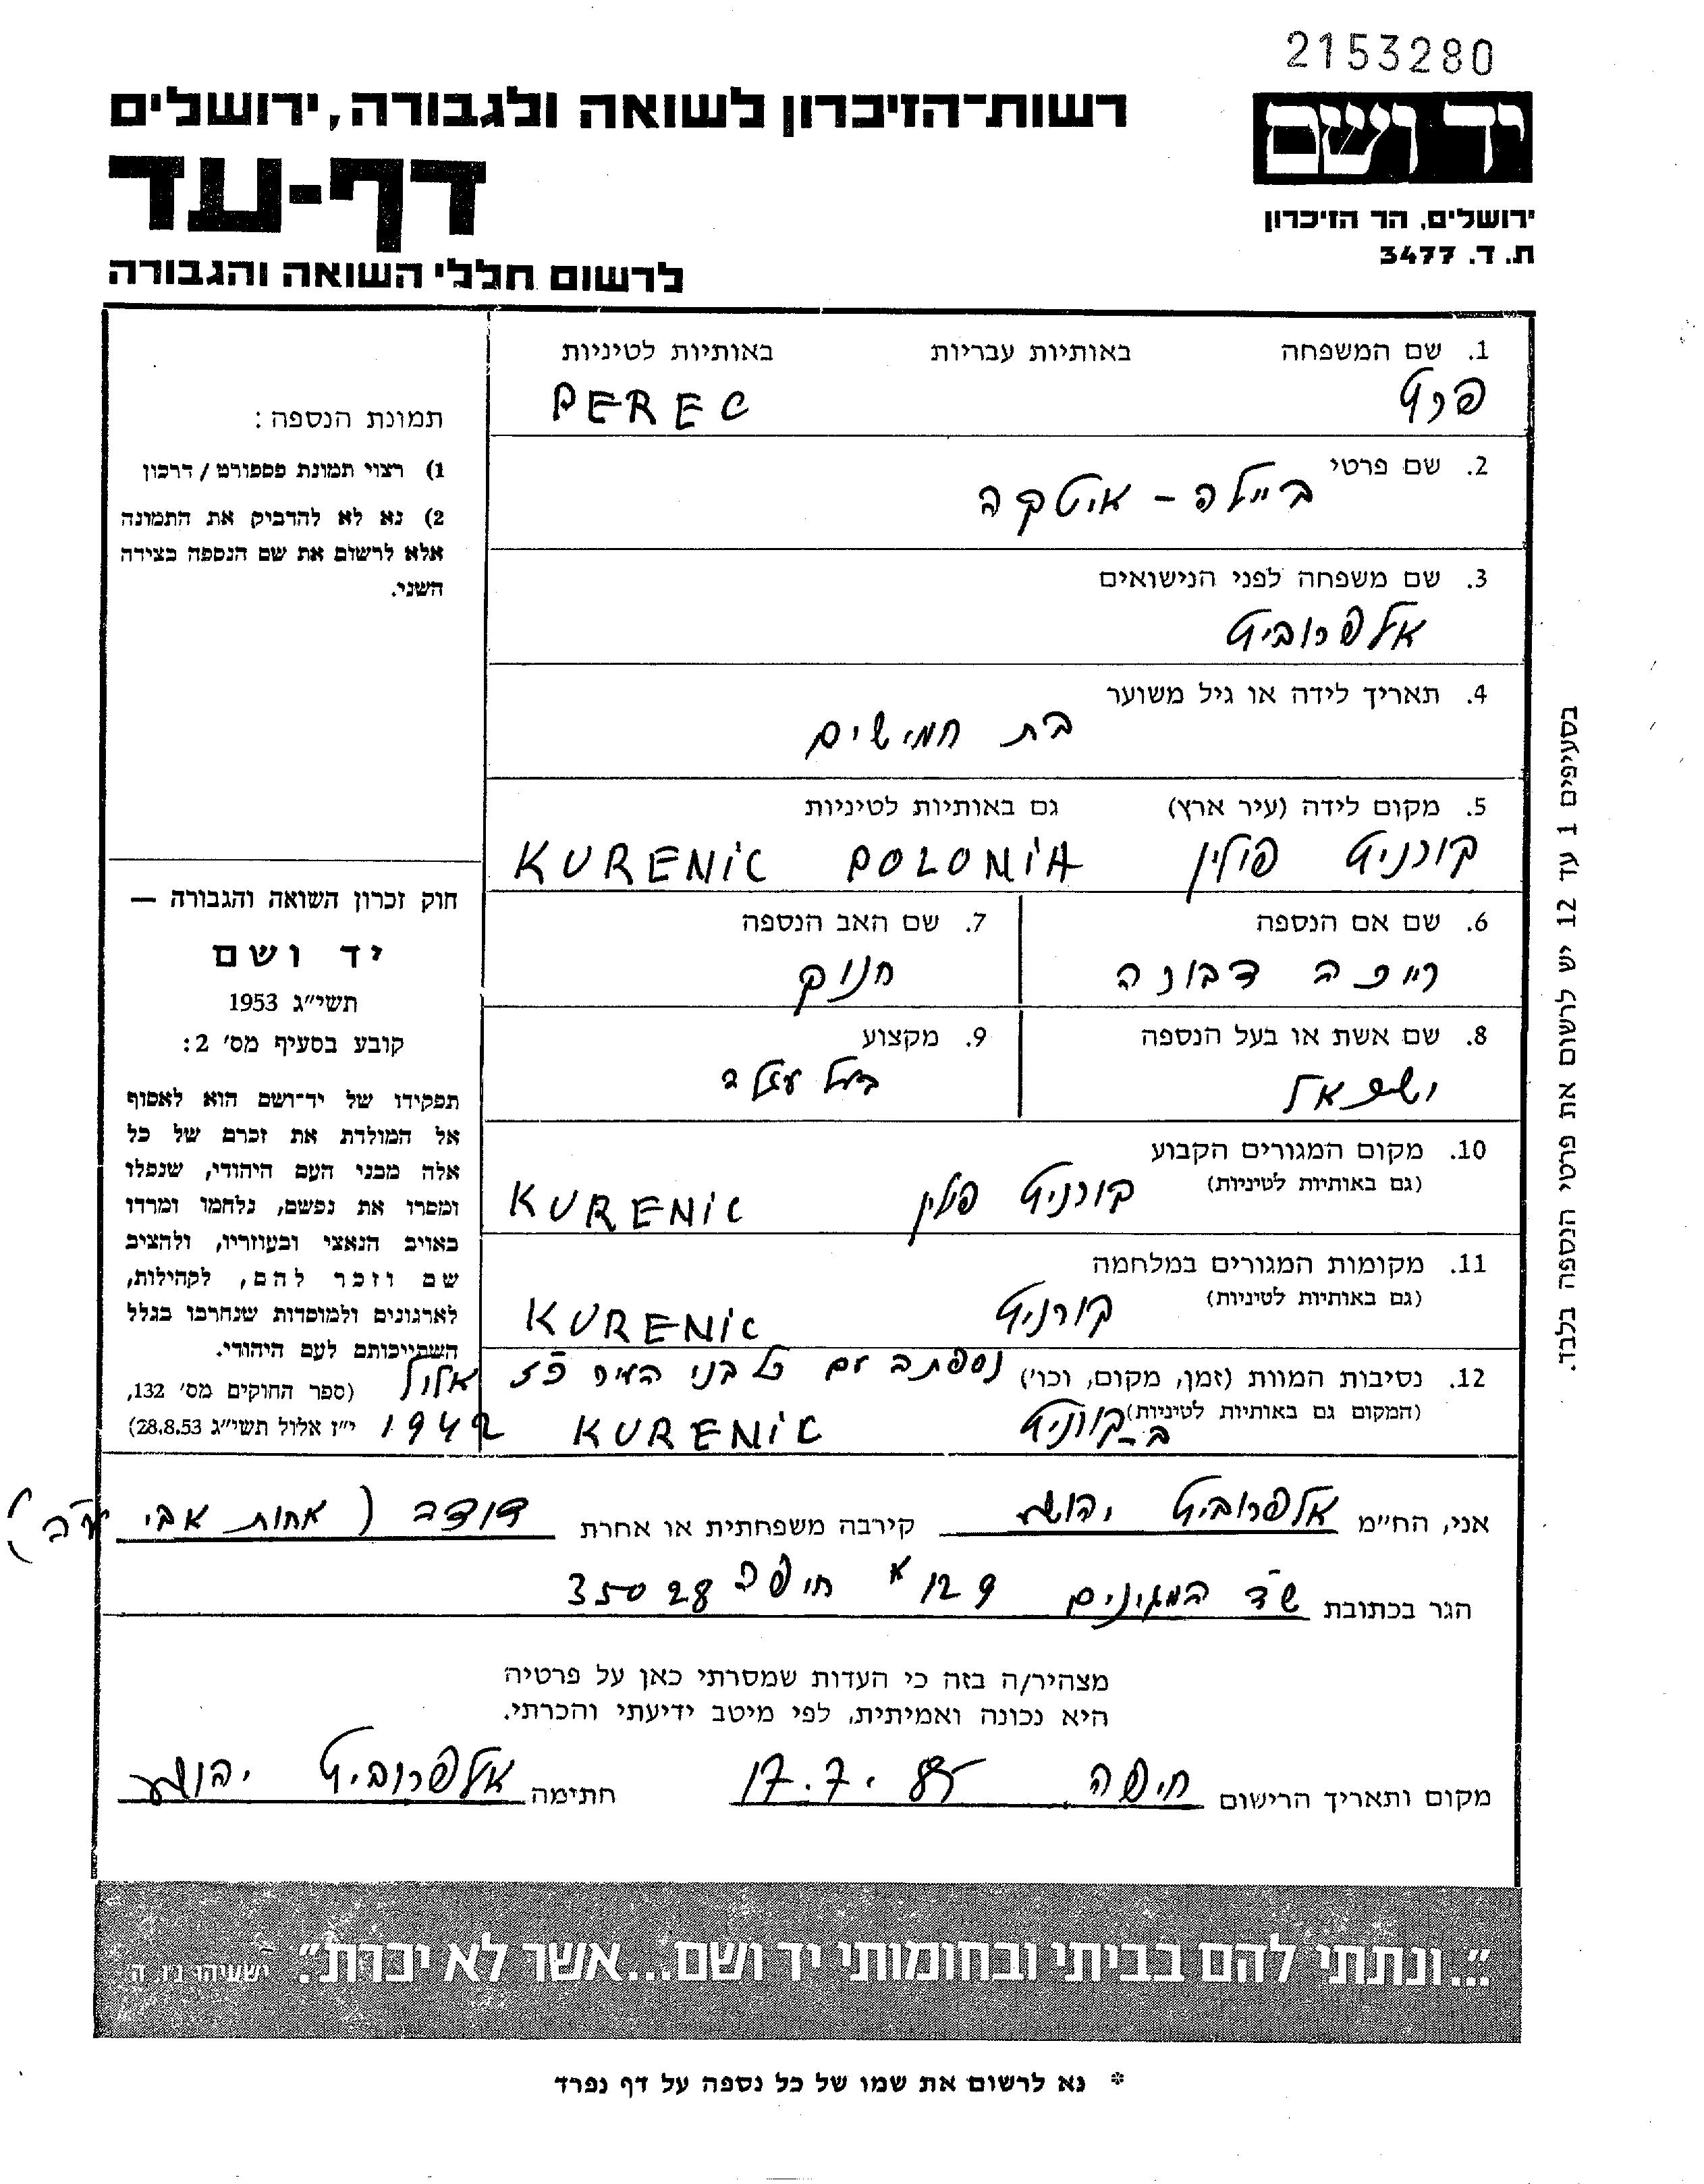 2153280
רשות-הזיכרון לשואה ולגבורה, ירושלים
יד ושם
דף-עד
ירושלים, הר הזיכרון
ת. ד. 3477
לרשום חללי השואה והגבורה
1. שם המשפחה באותיות עבריות באותיות לטיניות
פרץ PEREC
2. שם פרטי ביילה - איטקה
3. שם משפחה לפני הנישואים
אלפרוביץ
4. תאריך לידה או גיל משוער
בת חמישים
5. מקום לידה (עיר ארץ) גם באותיות לטיניות
קורניץ פולין KURENiC POLONiA
6. שם אם הנספה 7. שם האב הנספה
רייכה דבונה חנוק
8. שם אשת או בעל הנספה 9. מקצוע
בעל עגלה
10. מקום המגורים הקבוע
(גם באותיות לטיניות) קורניץ פולין KURENiC
11. מקומות המגורים במלחמה
(גם באותיות לטיניות) קורניץ KURENiC
12. נסיבות המוות (זמן, מקום, וכו') נספתה עם כל בני העיר אלול
(המקום גם באותיות לטיניות) ב-קורניץ KURENiC 1942
תמונת הנספה:
1) רצוי תמונת פספורט / דרכון
2) נא לא להדביק את התמונה
אלא לרשום את שם הנספה בצידה
השני.
חוק זכרון השואה והגבורה —
יד ושם
תשי״ג 1953
קובע בסעיף מס' 2:
תפקידו של יד־ושם הוא לאסוף
אל המולדת את זכרם של כל
אלה מבני העם היהודי, שנפלו
ומסרו את נפשם, נלחמו ומרדו
באויב הנאצי ובעוזריו, ולהציב
שם וזכר להם, לקהילות,
לארגונים ולמוסדות שנחרבו בגלל
השתייכותם לעם היהודי.
(ספר החוקים מס' 132,
י״ז אלול תשי״ג 28.8.53)
בסעיפים 1 עד 12 יש לרשום את פרטי הנספה בלבד.
אני, הח״מ אלפרוביץ יהושע קירבה משפחתית או אחרת דודה (אחות אבי ע״ה)
הגר בכתובת שד' המגינים 129א חיפה 35028
מצהיר/ה בזה כי העדות שמסרתי כאן על פרטיה
היא נכונה ואמיתית, לפי מיטב ידיעתי והכרתי.
מקום ותאריך הרישום חיפה 17.7.85 חתימה אלפרוביץ יהושע
"...ונתתי להם בביתי ובחומותי יד ושם...אשר לא יכרת". ישעיהו נ״ו, ה'
* נא לרשום את שמו של כל נספה על דף נפרד